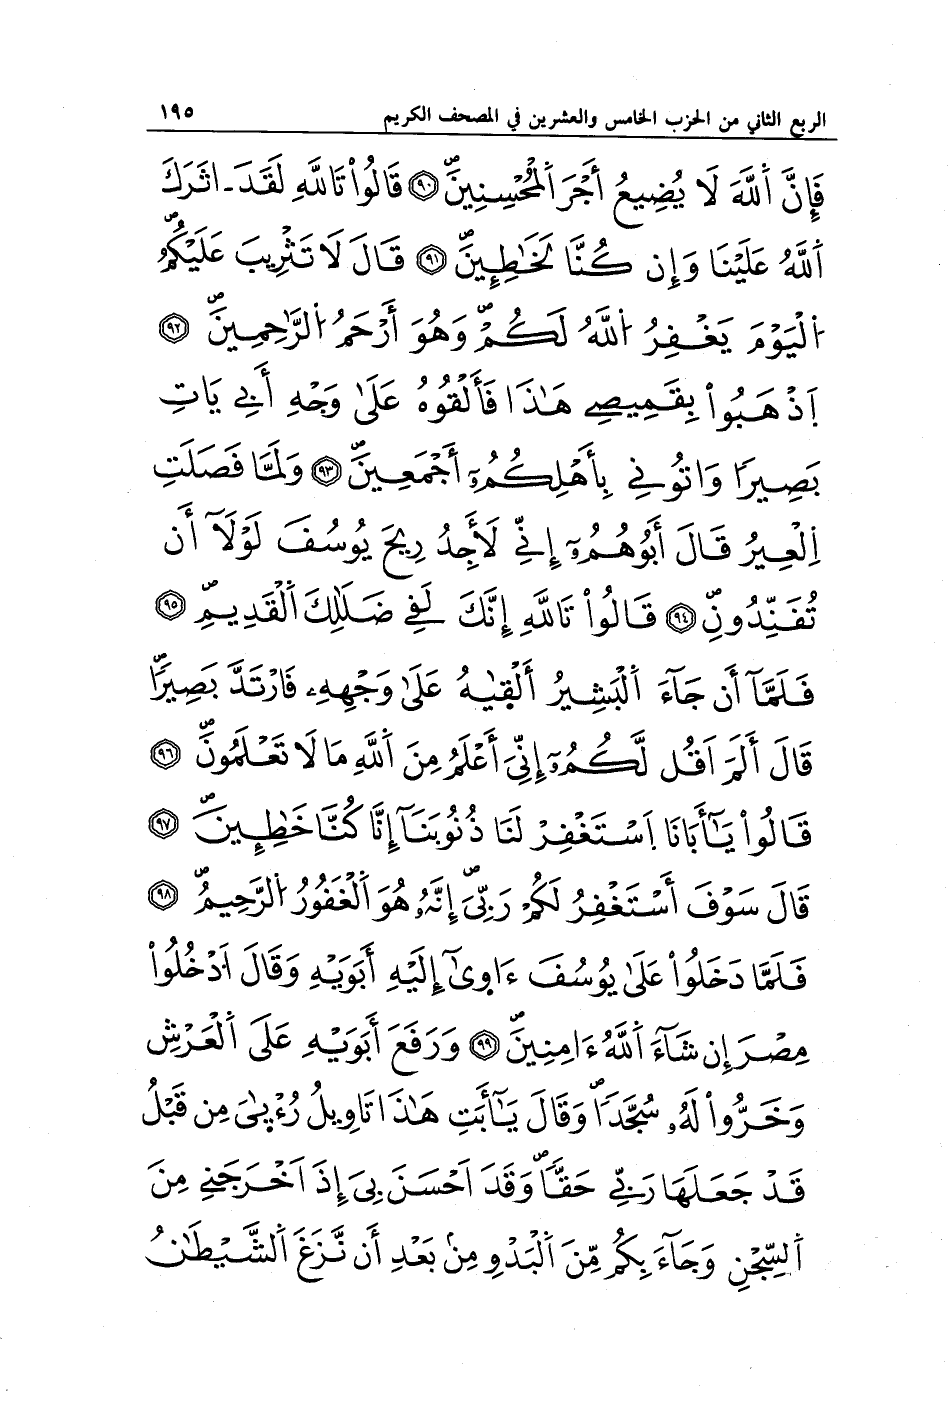 الربع الثاني من الحزب الخامس والعشرين في المصحف الكريم ١٩٥
فَإِنَّ اَ۬للَّهَ لَا يُضِيعُ أَجْرَ اَ۬لْمُحْسِنِينَۖ ٩٠ قَالُواْ تَاللَّهِ لَقَدَ ـ اثَرَكَ
اَ۬للَّهُ عَلَيْنَا وَإِن كُنَّا لَخَٰطِـِٕينَۖ ٩١ قَالَ لَا تَثْرِيبَ عَلَيْكُمُۖ
اُ۬لْيَوْمَ يَغْفِرُ اُ۬للَّهُ لَكُمْۖ وَهُوَ أَرْحَمُ اُ۬لرَّٰحِمِينَۖ ٩٢
اَ۪ذْهَبُواْ بِقَمِيصِے هَٰذَا فَأَلْقُوهُ عَلَىٰ وَجْهِ أَبِے يَاتِ
بَصِيراٗ وَاتُونِے بِأَهْلِكُمُۥٓ أَجْمَعِينَۖ ٩٣ وَلَمَّا فَصَلَتِ
اِ۬لْعِيرُ قَالَ أَبُوهُمُۥٓ إِنِّے لَأَجِدُ رِيحَ يُوسُفَ لَوْلَآ أَن
تُفَنِّدُونِۖ ٩٤ قَالُواْ تَاللَّهِ إِنَّكَ لَفِے ضَلَٰلِكَ اَ۬لْقَدِيمِۖ ٩٥
فَلَمَّآ أَن جَآءَ اَ۬لْبَشِيرُ أَلْق۪يٰهُ عَلَىٰ وَجْهِهِۦ فَارْتَدَّ بَصِيراٗۖ
قَالَ أَلَمَ اَقُل لَّكُمُۥٓ إِنِّيَ أَعْلَمُ مِنَ اَ۬للَّهِ مَا لَا تَعْلَمُونَۖ ٩٦
قَالُواْ يَٰٓأَبَانَا اَ۪سْتَغْفِرْ لَنَا ذُنُوبَنَآ إِنَّا كُنَّا خَٰطِـِٕينَۖ ٩٧
قَالَ سَوْفَ أَسْتَغْفِرُ لَكُمْ رَبِّيَۖ إِنَّهُۥ هُوَ اَ۬لْغَفُورُ اُ۬لرَّحِيمُۖ ٩٨
فَلَمَّا دَخَلُواْ عَلَىٰ يُوسُفَ ءَاو۪ىٰٓ إِلَيْهِ أَبَوَيْهِ وَقَالَ اَ۟دْخُلُواْ
مِصْرَ إِن شَآءَ اَ۬للَّهُ ءَامِنِينَۖ ٩٩ وَرَفَعَ أَبَوَيْهِ عَلَى اَ۬لْعَرْشِ
وَخَرُّواْ لَهُۥ سُجَّداٗۖ وَقَالَ يَٰٓأَبَتِ هَٰذَا تَاوِيلُ رُءْيٰ۪يَ مِن قَبْلُ
قَدْ جَعَلَهَا رَبِّے حَقّاٗۖ وَقَدَ اَحْسَنَ بِيَ إِذَ اَخْرَجَنِے مِنَ
اَ۬لسِّجْنِ وَجَآءَ بِكُم مِّنَ اَ۬لْبَدْوِ مِنۢ بَعْدِ أَن نَّزَغَ اَ۬لشَّيْطَٰنُ